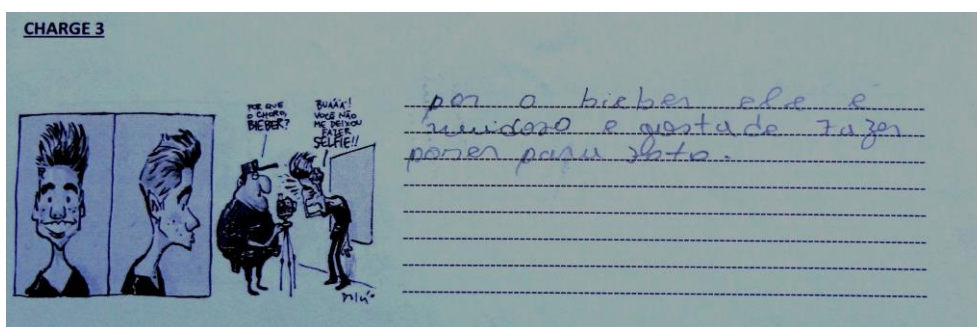 CHARGE 3
POR QUE
O CHORO,
BIEBER?
BUÁÁÁ!
VOCÊ NÃO
ME DEIXOU
FAZER
SELFIE!!
por o bieber ele e
e gosta de fazer
poner para